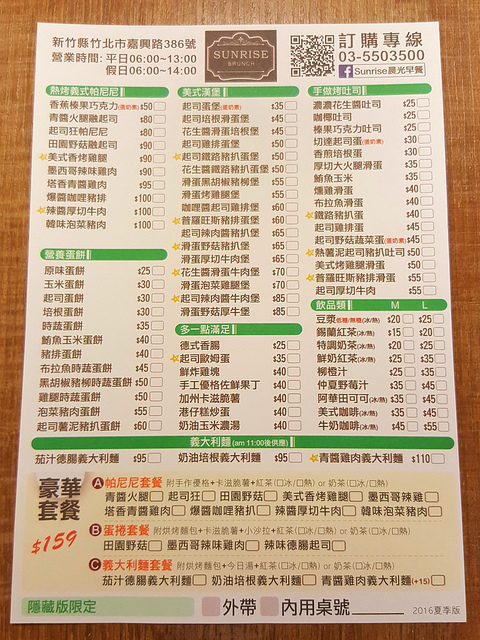 新竹縣竹北市嘉興路386號
營業時間: 平日06:00~13:00
假日06:00~14:00
SUNRISE
BRUNCH
訂購專線
03-5503500
f Sunrise晨光早餐
熱烤義式帕尼尼
香蕉榛果巧克力(蛋奶素) $50
青醬火腿融起司 $80
起司狂帕尼尼 $80
田園野菇融起司 $90
美式香烤雞腿 $90
墨西哥辣味雞肉 $90
塔香青醬雞肉 $95
爆醬咖哩豬排 $100
辣醬厚切牛肉 $100
韓味泡菜豬肉 $100
營養蛋餅
原味蛋餅 $25
玉米蛋餅 $30
起司蛋餅 $30
培根蛋餅 $30
時蔬蛋餅 $35
鮪魚玉米蛋餅 $40
豬排蛋餅 $40
布拉魚時蔬蛋餅 $45
黑胡椒豬柳時蔬蛋餅 $50
雞腿時蔬蛋餅 $50
泡菜豬肉蛋餅 $55
起司薯泥豬扒蛋餅 $60
美式漢堡
起司蛋堡(蛋奶素) $35
起司培根滑蛋堡 $45
花生醬滑蛋培根堡 $45
起司雞排蛋堡 $50
起司鐵路豬扒蛋堡 $50
花生醬鐵路豬扒蛋堡 $50
滑蛋黑胡椒豬柳堡 $55
滑蛋烤雞腿堡 $55
咖哩醬起司雞排堡 $60
普羅旺斯豬排蛋堡 $60
起司辣肉醬豬扒堡 $65
滑蛋野菇豬扒堡 $65
滑蛋厚切牛肉堡 $65
花生醬滑蛋牛肉堡 $70
滑蛋泡菜雞腿堡 $70
起司辣肉醬牛肉堡 $85
滑蛋野菇厚牛堡 $85
多一點滿足
德式香腸 $25
起司歐姆蛋 $35
鮮炸雞塊 $40
手工優格佐鮮果丁 $40
加州卡滋脆薯 $40
港仔糕炒蛋 $40
奶油玉米濃湯 $50
手做烤吐司
濃濃花生醬吐司 $25
咖椰吐司 $25
榛果巧克力吐司 $25
切達起司蛋(蛋奶素) $30
香煎培根蛋 $30
厚切大火腿滑蛋 $35
鮪魚玉米 $35
燻雞滑蛋 $40
布拉魚滑蛋 $40
鐵路豬扒蛋 $40
起司雞排蛋 $45
起司野菇蔬菜蛋(蛋奶素) $45
熱薯泥起司豬扒吐司 $50
美式烤雞腿滑蛋 $50
普羅旺斯豬排滑蛋 $55
起司厚切牛肉 $55
飲品類 M L
豆漿 低糖/無糖(冰/熱) $20 $25
錫蘭紅茶(冰/熱) $15 $20
特調奶茶(冰/熱) $20 $25
鮮奶紅茶(冰/熱) $25 $35
柳橙汁 $25 $35
仲夏野莓汁 $35 $45
阿華田可可(冰/熱) $35 $45
美式咖啡(冰/熱) $35 $45
牛奶咖啡(冰/熱) $45 $55
義大利麵 (am 11:00後供應)
茄汁德腸義大利麵 $95 奶油培根義大利麵 $95 青醬雞肉義大利麵 $110
豪華
套餐
$159
A 帕尼尼套餐 附手作優格+卡滋脆薯+紅茶(□冰/□熱) or 奶茶(□冰/□熱)
青醬火腿 起司狂 田園野菇 美式香烤雞腿 墨西哥辣雞
塔香青醬雞肉 爆醬咖哩豬肉 辣醬厚切牛肉 韓味泡菜豬肉
B 蛋捲套餐 附烘烤麵包+卡滋脆薯+小沙拉+紅茶(□冰/□熱) or 奶茶(□冰/□熱)
田園野菇 墨西哥辣味雞肉 辣味德腸起司
C 義大利麵套餐 附烘烤麵包+今日湯+紅茶(□冰/□熱) or 奶茶(□冰/□熱)
茄汁德腸義大利麵 奶油培根義大利麵 青醬雞肉義大利麵(+15)
隱藏版限定 外帶 內用桌號 2016夏季版